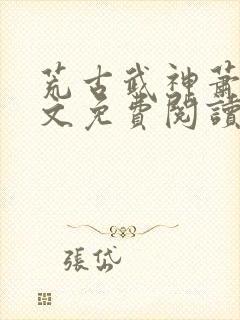 荒古武神蕭
文免費閱讀
張岱